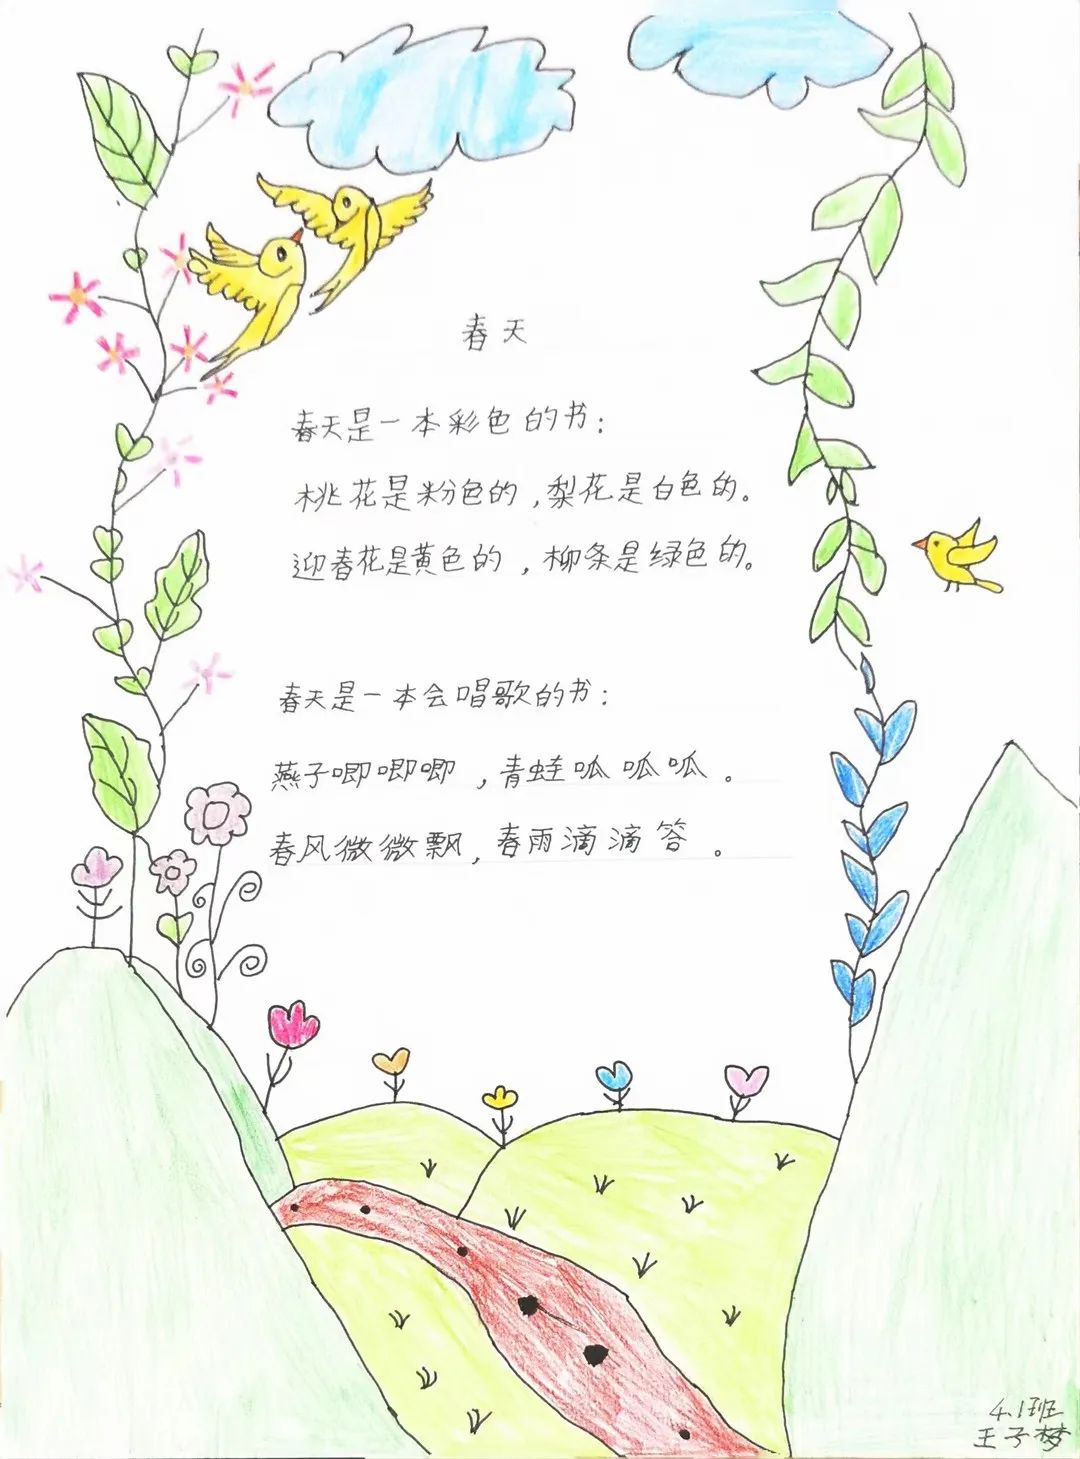 春天
春天是一本彩色的书：
桃花是粉色的，梨花是白色的。
迎春花是黄色的，柳条是绿色的。
春天是一本会唱歌的书：
燕子唧唧唧，青蛙呱呱呱。
春风微微飘，春雨滴滴答。
4.1班
王子梦